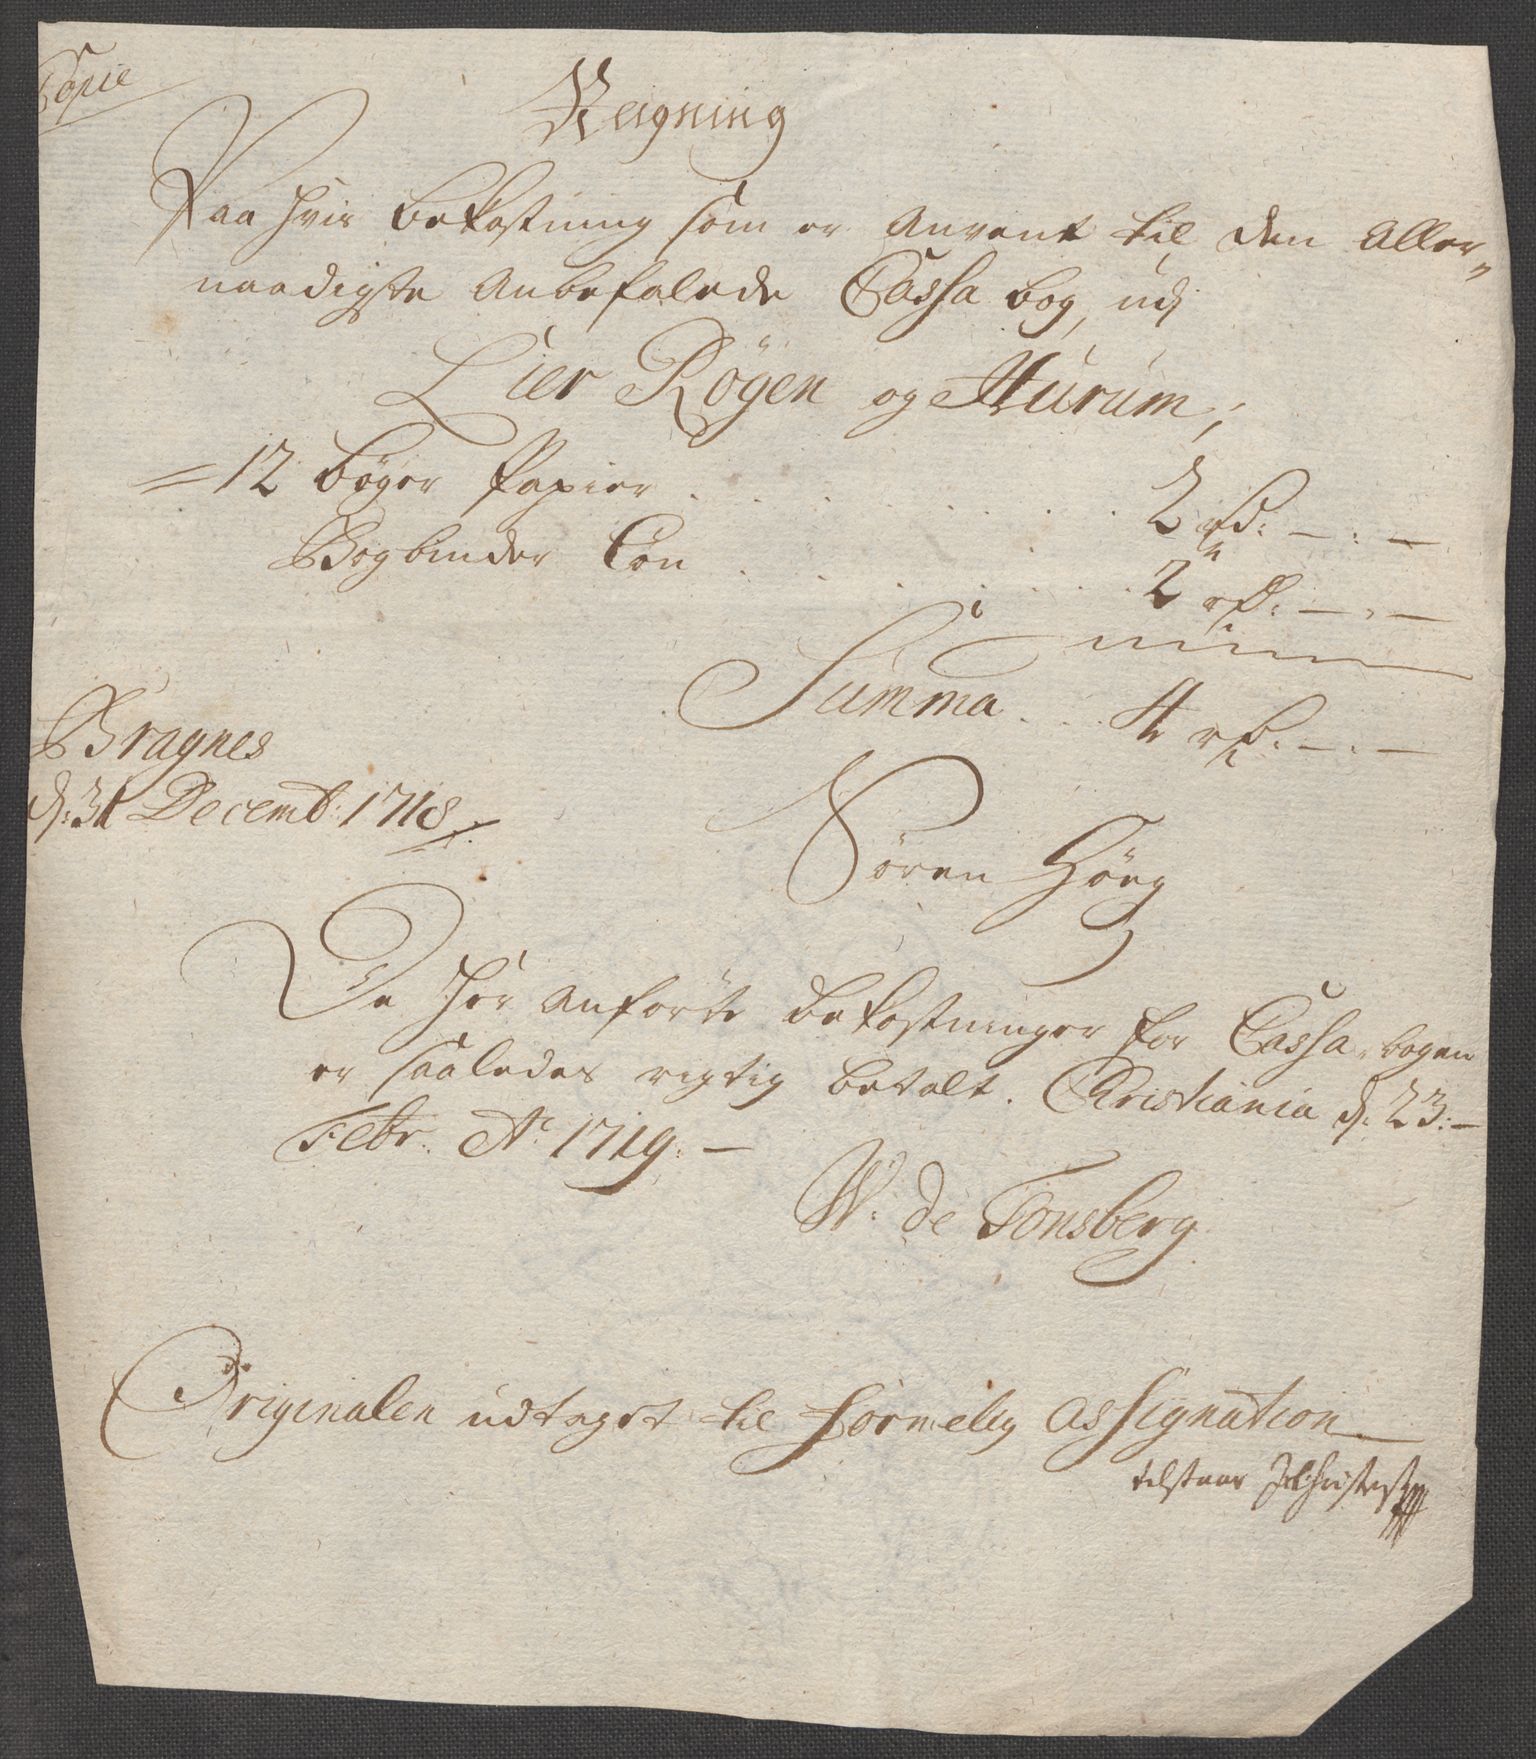 Copie
Reigning
Paa hvis bekostning som er Anvent til den Aller-
naadigste Anbefalede Cassa bog, udj
Lier Røgen og Hurum;
= 12 bøger Papier . . . . . . 2 rd: — : —
Bogbinder Løn . . . . . . 2 rd: — : —
Summa . . 4 rd: — : —
Bragnes
d: 31 Decemb: 1718
Søren Høeg
De her anførte bekostninger for Cassa-bogen
er saaledes rigtig betalt. Christiania d: 23: —
Febr. Ao 1719. —
W: de Tonsberg
Originalen udtaget til formelig assignation
tilstaar